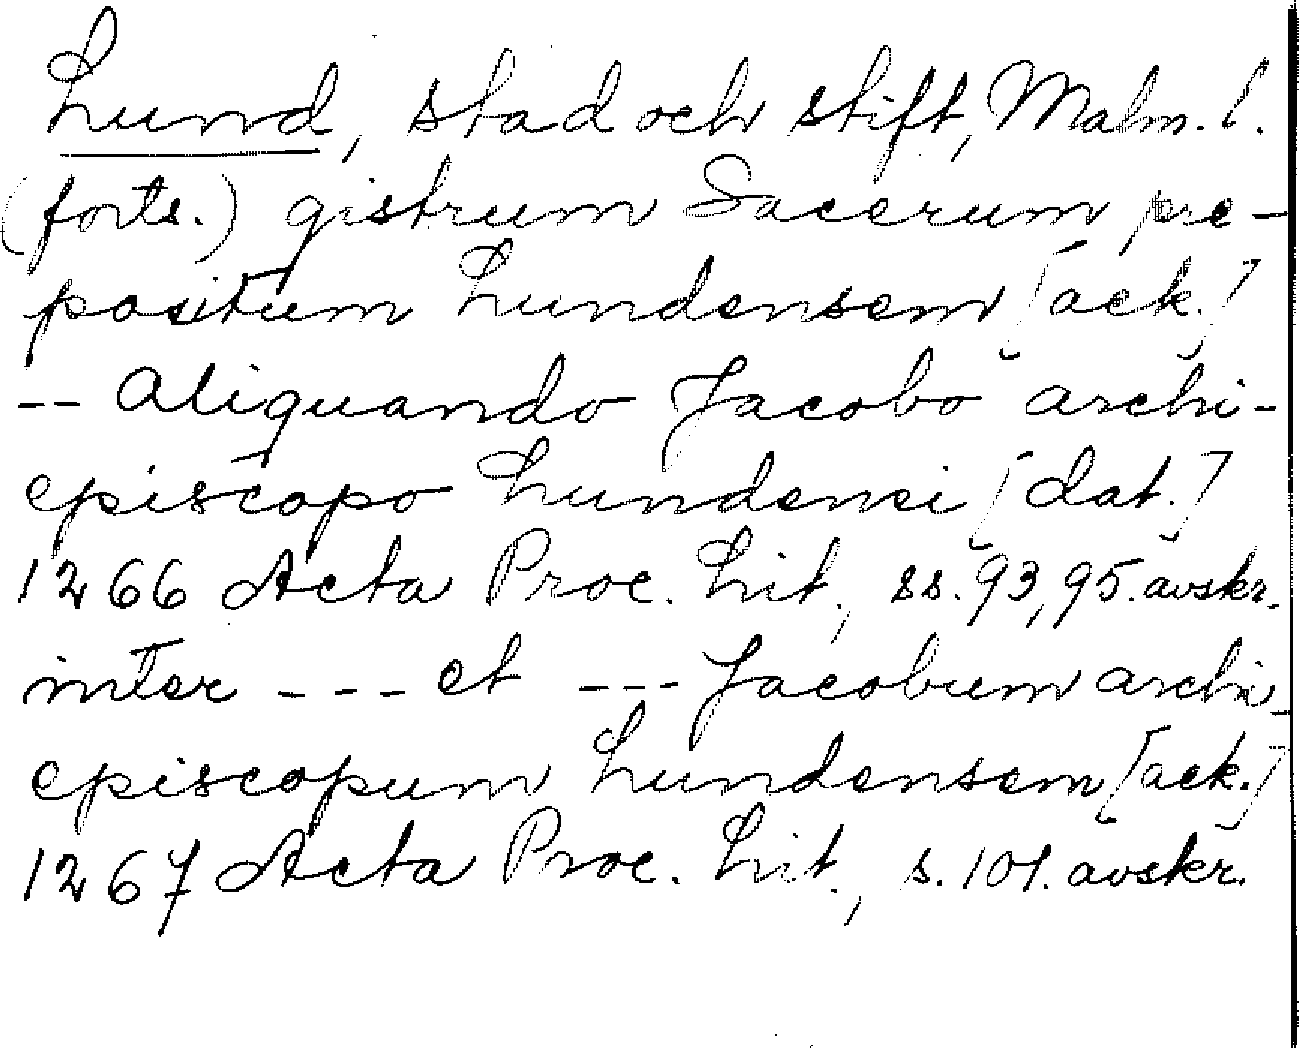 Lund, stad och stift, Malm. l.
(forts.) gistrum Sacerum pre-
positum Lundensem [ack.]
-- Aliquando Jacobo archi-
episcopo Lundensi [dat.]
1266 Acta Proc. Lit., ss. 93, 95. avskr.
inter --- et --- Jacobum archi-
episcopum Lundensem [ack.]
1267 Acta Proc. Lit., s. 101. avskr.